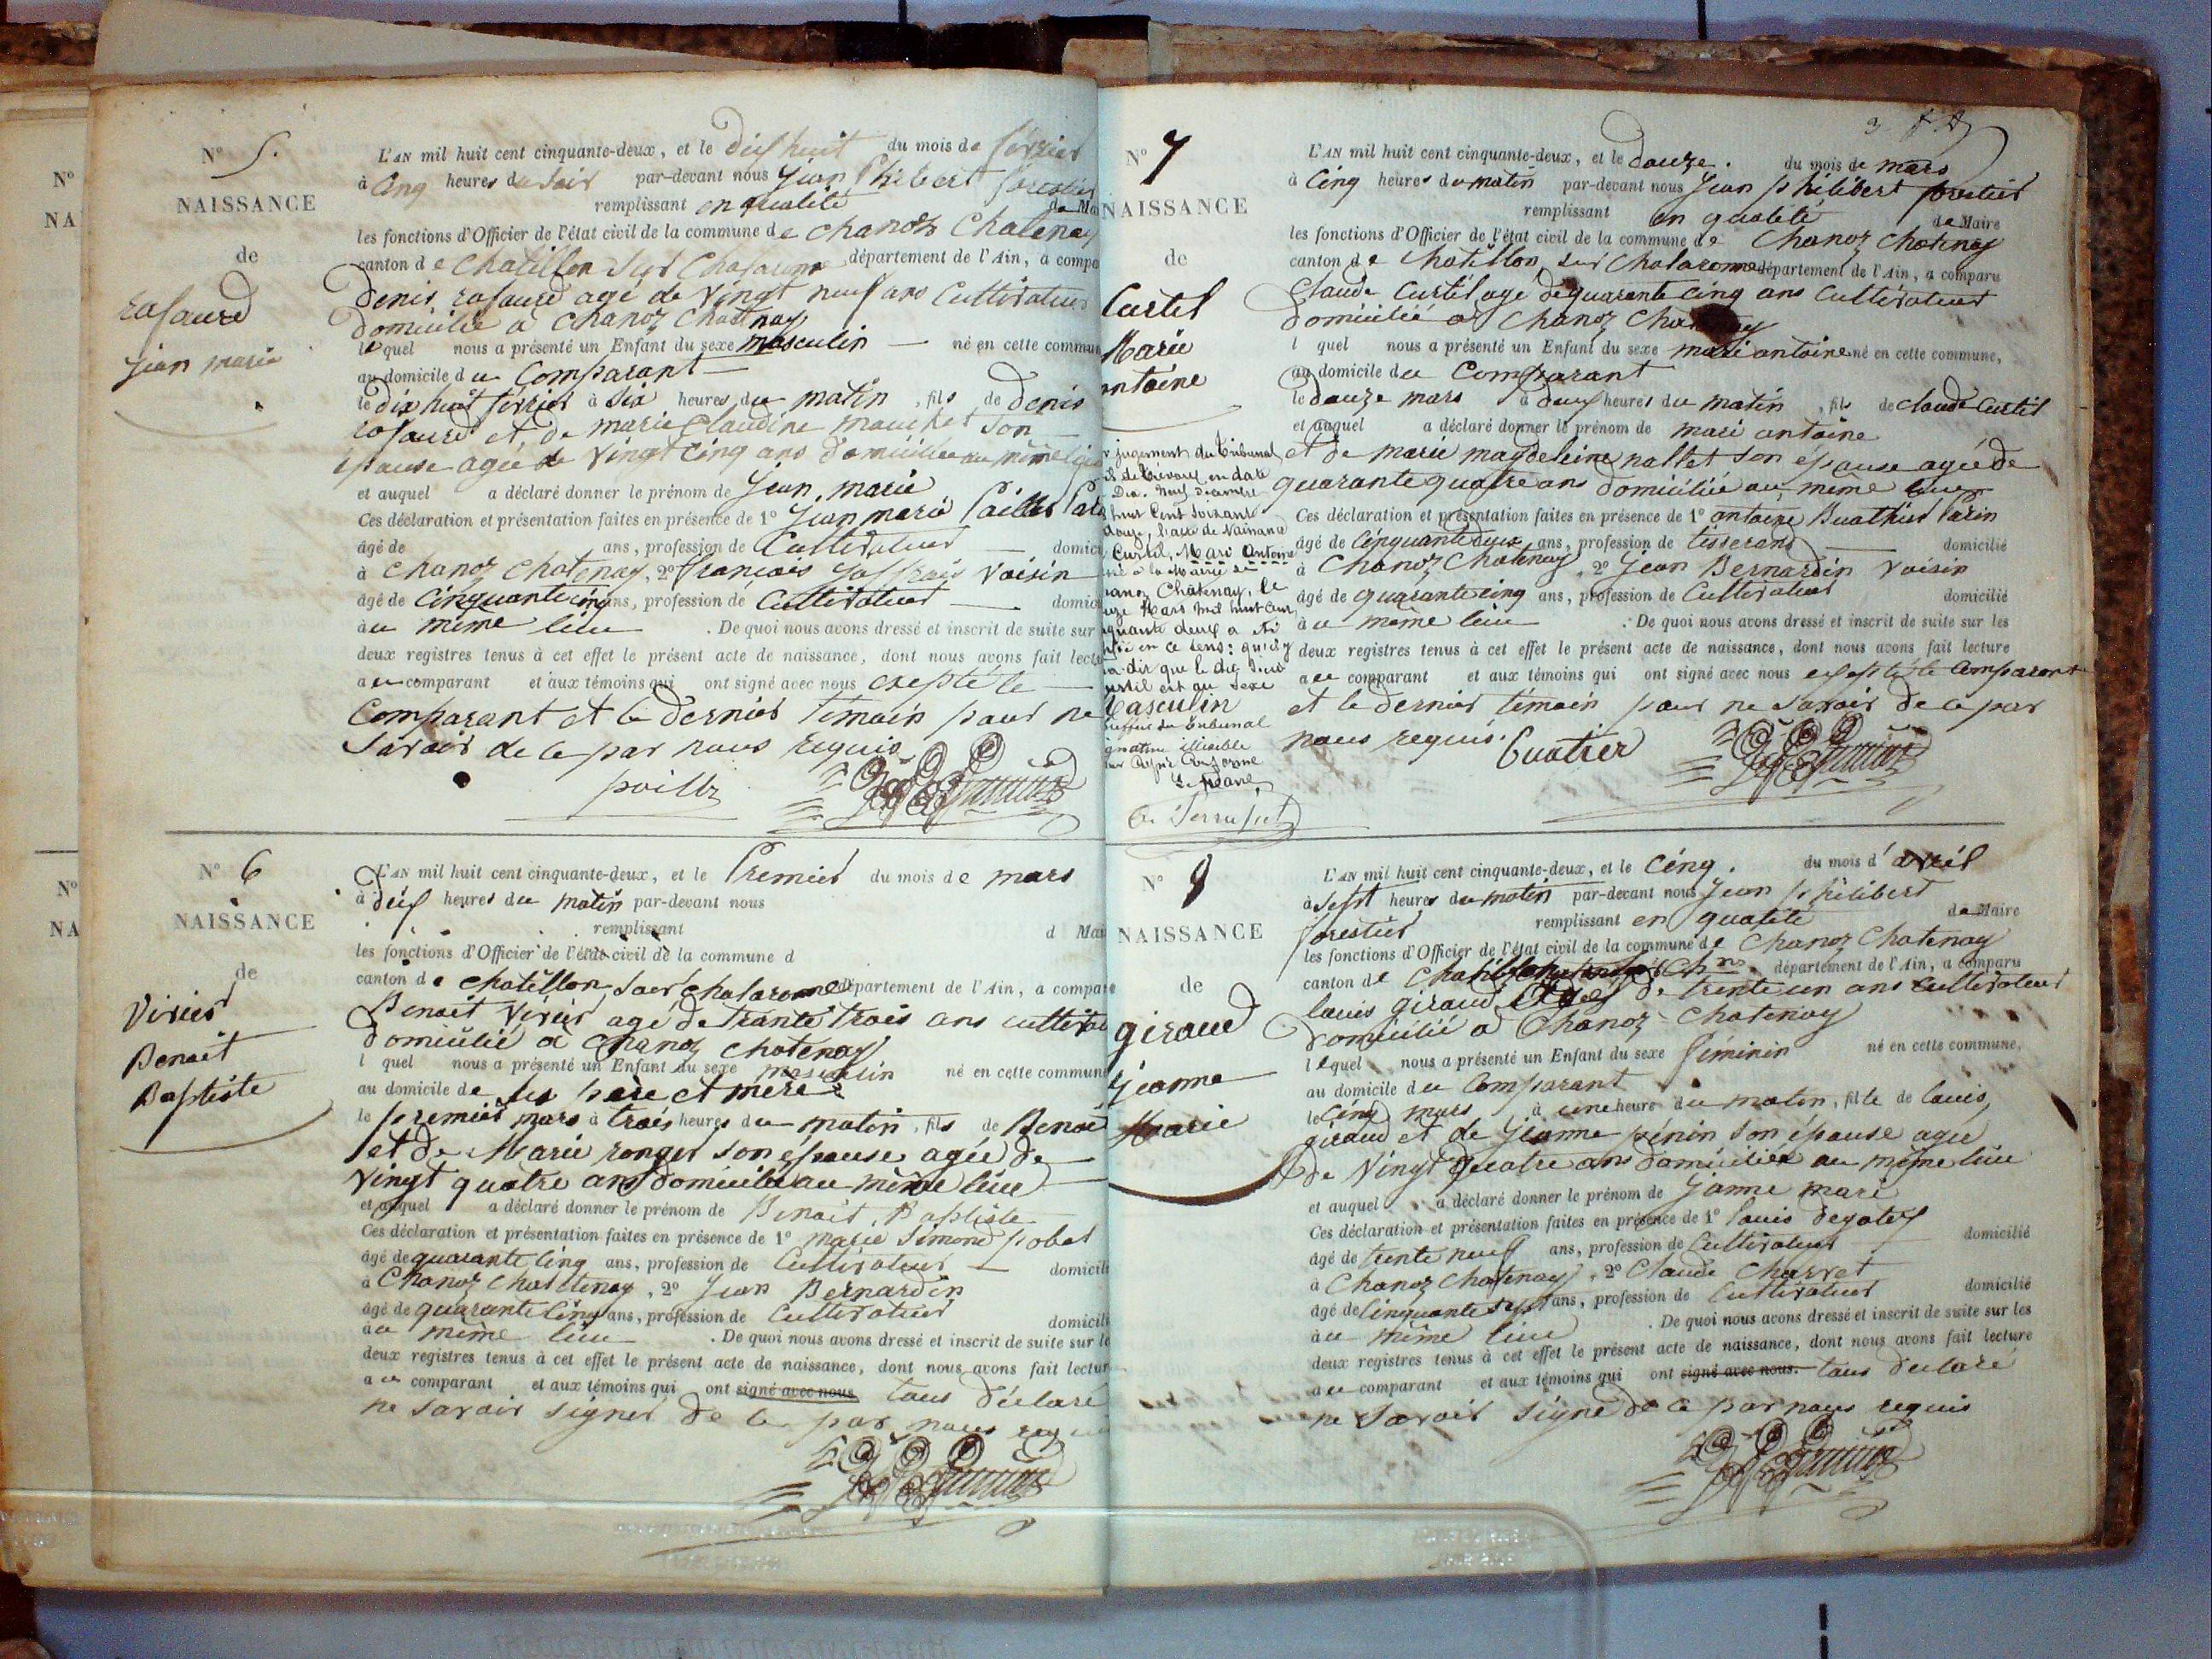 N°
NA
N°
NA
N° 5.
NAISSANCE
de
rofaurd
jean marie
L'AN mil huit cent cinquante-deux, et le dix huit du mois de février
à cinq heures du soir par-devant nous Jean Philibert forestier
remplissant en qualité de Mai
les fonctions d'Officier de l'état civil de la commune de chanoz Chatenay
canton de Chatillon sur Chalaronne département de l'Ain, a compa
Denis rofaurd agé de vingt neuf ans Cultivateur
domicilié a chanoz Chatenay
lequel nous a présenté un Enfant du sexe masculin né en cette commun
au domicile du Comparant
le dix huit février à six heures du matin, fils de denis
rofaurd et de marie Claudine mouchet son
épouse agée de vingt cinq ans domiciliée au même lieu
et auquel a déclaré donner le prénom de Jean marie
Ces déclaration et présentation faites en présence de 1° Jean marie
âgé de ans, profession de Cultivateur domici
à chanoz chatenay, 2° françois voisin
âgé de cinquante cinq ans, profession de Cultivateur domici
au même lieu. De quoi nous avons dressé et inscrit de suite sur
deux registres tenus à cet effet le présent acte de naissance, dont nous avons fait lectu
au comparant et aux témoins qui ont signé avec nous exepté le
Comparant et le dernier témoin pour ne
savoir de ce par nous requis
N° 6
NAISSANCE
de
Virier
Benoit
Baptiste
L'AN mil huit cent cinquante-deux, et le Premier du mois de mars
à dix heures du matin par-devant nous
remplissant d Mai
les fonctions d'Officier de l'état civil de la commune d
canton de chatillon sur chalaronne département de l'Ain, a compar
Benoit Virier agé de trante trois ans cultivat
domicilié a chanoz chatenay
l quel nous a présenté un Enfant du sexe masculin né en cette commun
au domicile de ses père et mère
le premier mars à trois heures du matin, fils de Benoi
et de Marie ronger son épouse agée de
vingt quatre ans domiciliée au même lieu
et auquel a déclaré donner le prénom de Benoit Baptiste
Ces déclaration et présentation faites en présence de 1° marie simond pobel
âgé de quarante cinq ans, profession de Cultivateur domicili
à Chanoz Chatenay, 2° Jean Bernardin
âgé de quarante cinq ans, profession de Cultivateur domicili
au même lieu. De quoi nous avons dressé et inscrit de suite sur le
deux registres tenus à cet effet le présent acte de naissance, dont nous avons fait lectur
au comparant et aux témoins qui ont signé avec nous tous déclaré
ne savoir signer de ce par nous requis
3
N° 7
NAISSANCE
de
Curtil
Marie
antoine
r jugement du Tribunal
de Trévoux en date
Dix neuf décembre
huit cent soixante
douze, l'acte de Naissance
Curtil, Mari Antoine
à la Mairie de
hanoz Chatenay, le
uze Mars mil huit cent
quante deux a été
en ce sens: qu'il y
dir que le dit
urtil est du sexe
Masculin
Greffier du Tribunal
gnature illisible
Pour Copie Conforme
Le Maire,
L'AN mil huit cent cinquante-deux, et le douze. du mois de mars
à Cinq heures du matin par-devant nous Jean philibert forestier
remplissant en qualité de Maire
les fonctions d'Officier de l'état civil de la commune de Chanoz Chatenay
canton de Chatillon sur Chalaronne département de l'Ain, a comparu
Claude Curtil agé de quarante cinq ans Cultivateur
domicilié a Chanoz Chatenay
l quel nous a présenté un Enfant du sexe mari antoine né en cette commune,
au domicile du Comparant
le douze mars à deux heures du matin, fils de claude Curtil
et auquel a déclaré donner le prénom de mari antoine
et de marie magdeleine nallet son épouse agée de
quarante quatre ans domiciliée au même lieu
Ces déclaration et présentation faites en présence de 1° antoine Buathier
âgé de cinquante deux ans, profession de tisserand domicilié
à Chanoz Chatenay, 2° Jean Bernardin voisin
âgé de quarante cinq ans, profession de Cultivateur domicilié
au même lieu. De quoi nous avons dressé et inscrit de suite sur les
deux registres tenus à cet effet le présent acte de naissance, dont nous avons fait lecture
au comparant et aux témoins qui ont signé avec nous exepté le Comparant
et le dernier témoin pour ne savoir de ce par
nous requis.
N° 8
NAISSANCE
de
giraud
jeanne
Marie
L'AN mil huit cent cinquante-deux, et le Cinq. du mois d'avril
à sept heures du matin par-devant nous Jean philibert
forestier remplissant en qualité de Maire
les fonctions d'Officier de l'état civil de la commune de Chanoz Chatenay
canton de Chatillon département de l'Ain, a comparu
louis giraud agé de trente un ans cultivateur
domicilié a Chanoz-Chatenay
lequel nous a présenté un Enfant du sexe féminin né en cette commune,
au domicile du Comparant
le cinq mars à une heure du matin, fille de louis
giraud et de jeanne pénin son épouse agée
de vingt quatre ans domiciliée au même lieu
et auquel a déclaré donner le prénom de Janne mari
Ces déclaration et présentation faites en présence de 1° louis
âgé de trente neuf ans, profession de Cultivateur domicilié
à Chanoz Chatenay, 2° Claude Charvet
âgé de cinquante sept ans, profession de Cultivateur domicilié
au même lieu. De quoi nous avons dressé et inscrit de suite sur les
deux registres tenus à cet effet le présent acte de naissance, dont nous avons fait lecture
au comparant et aux témoins qui ont signé avec nous. tous déclaré
ne savoir signé de ce par nous requis